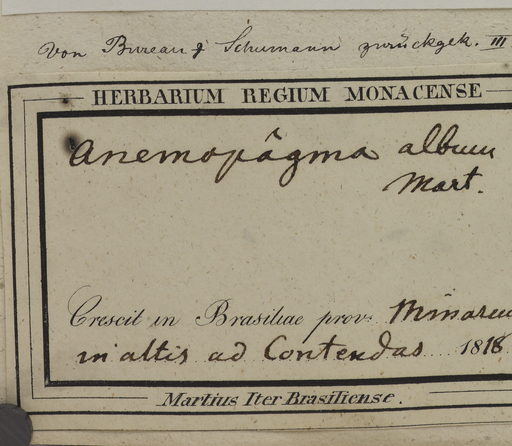 Von Bureau & Schumann zurückgek. III
HERBARIUM REGIUM MONACENSE
Anemopâgma album
Mart.
Crescit in Brasiliae prov. Minarum
in altis ad Contendas 1818
Martius Iter Brasiliense.